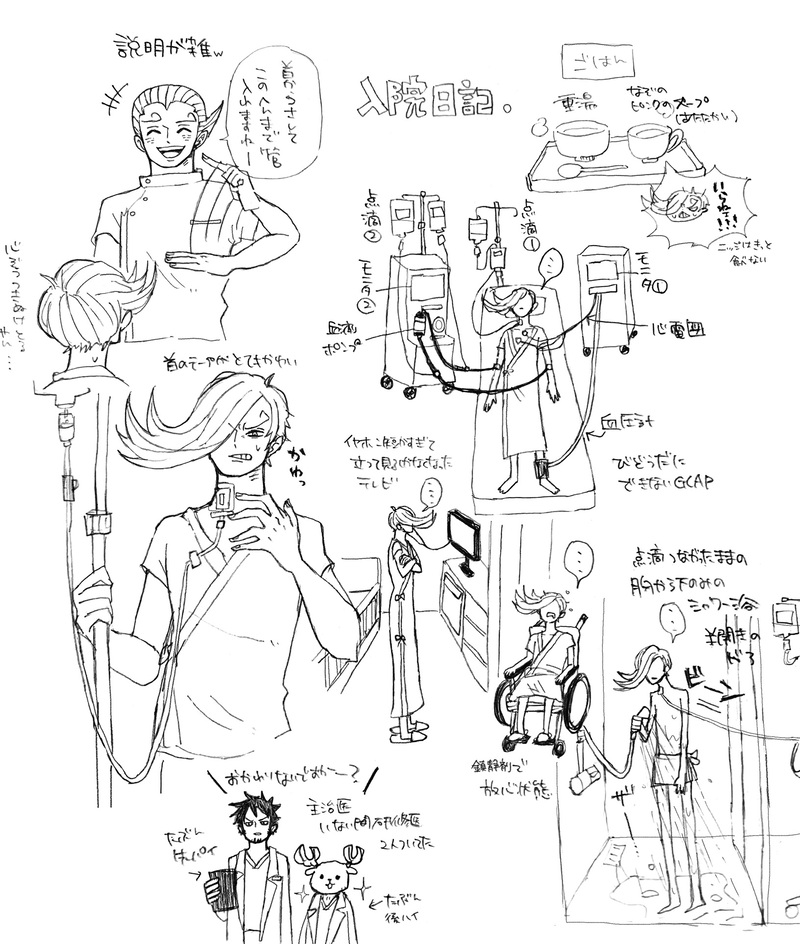 説明が雑w
首からさして
この辺まで管
入れますねー
入院日記.
ごはん
重湯
なぞの
ピンクのスープ
(あたたかい)
いらねェ!!!
ニッジはきっと
飲まない
点滴
②
点滴①
モニタ
②
モニタ①
血液
ポンプ
心電図
血圧計
びどうだに
できないGCAP
首のテープがとてもかわい
かゆっ
イヤホン短かすぎて
立って見るしかなくなった
テレビ
点滴つながったままの
胸から下のみの
シャワー浴
半開きの
ドア
ビーッ
ザー
鎮静剤で
放心状態
おかわりないですかー?
主治医
いない間研修医
2人ついてた
たぶん
センパイ
たぶん
後ハイ